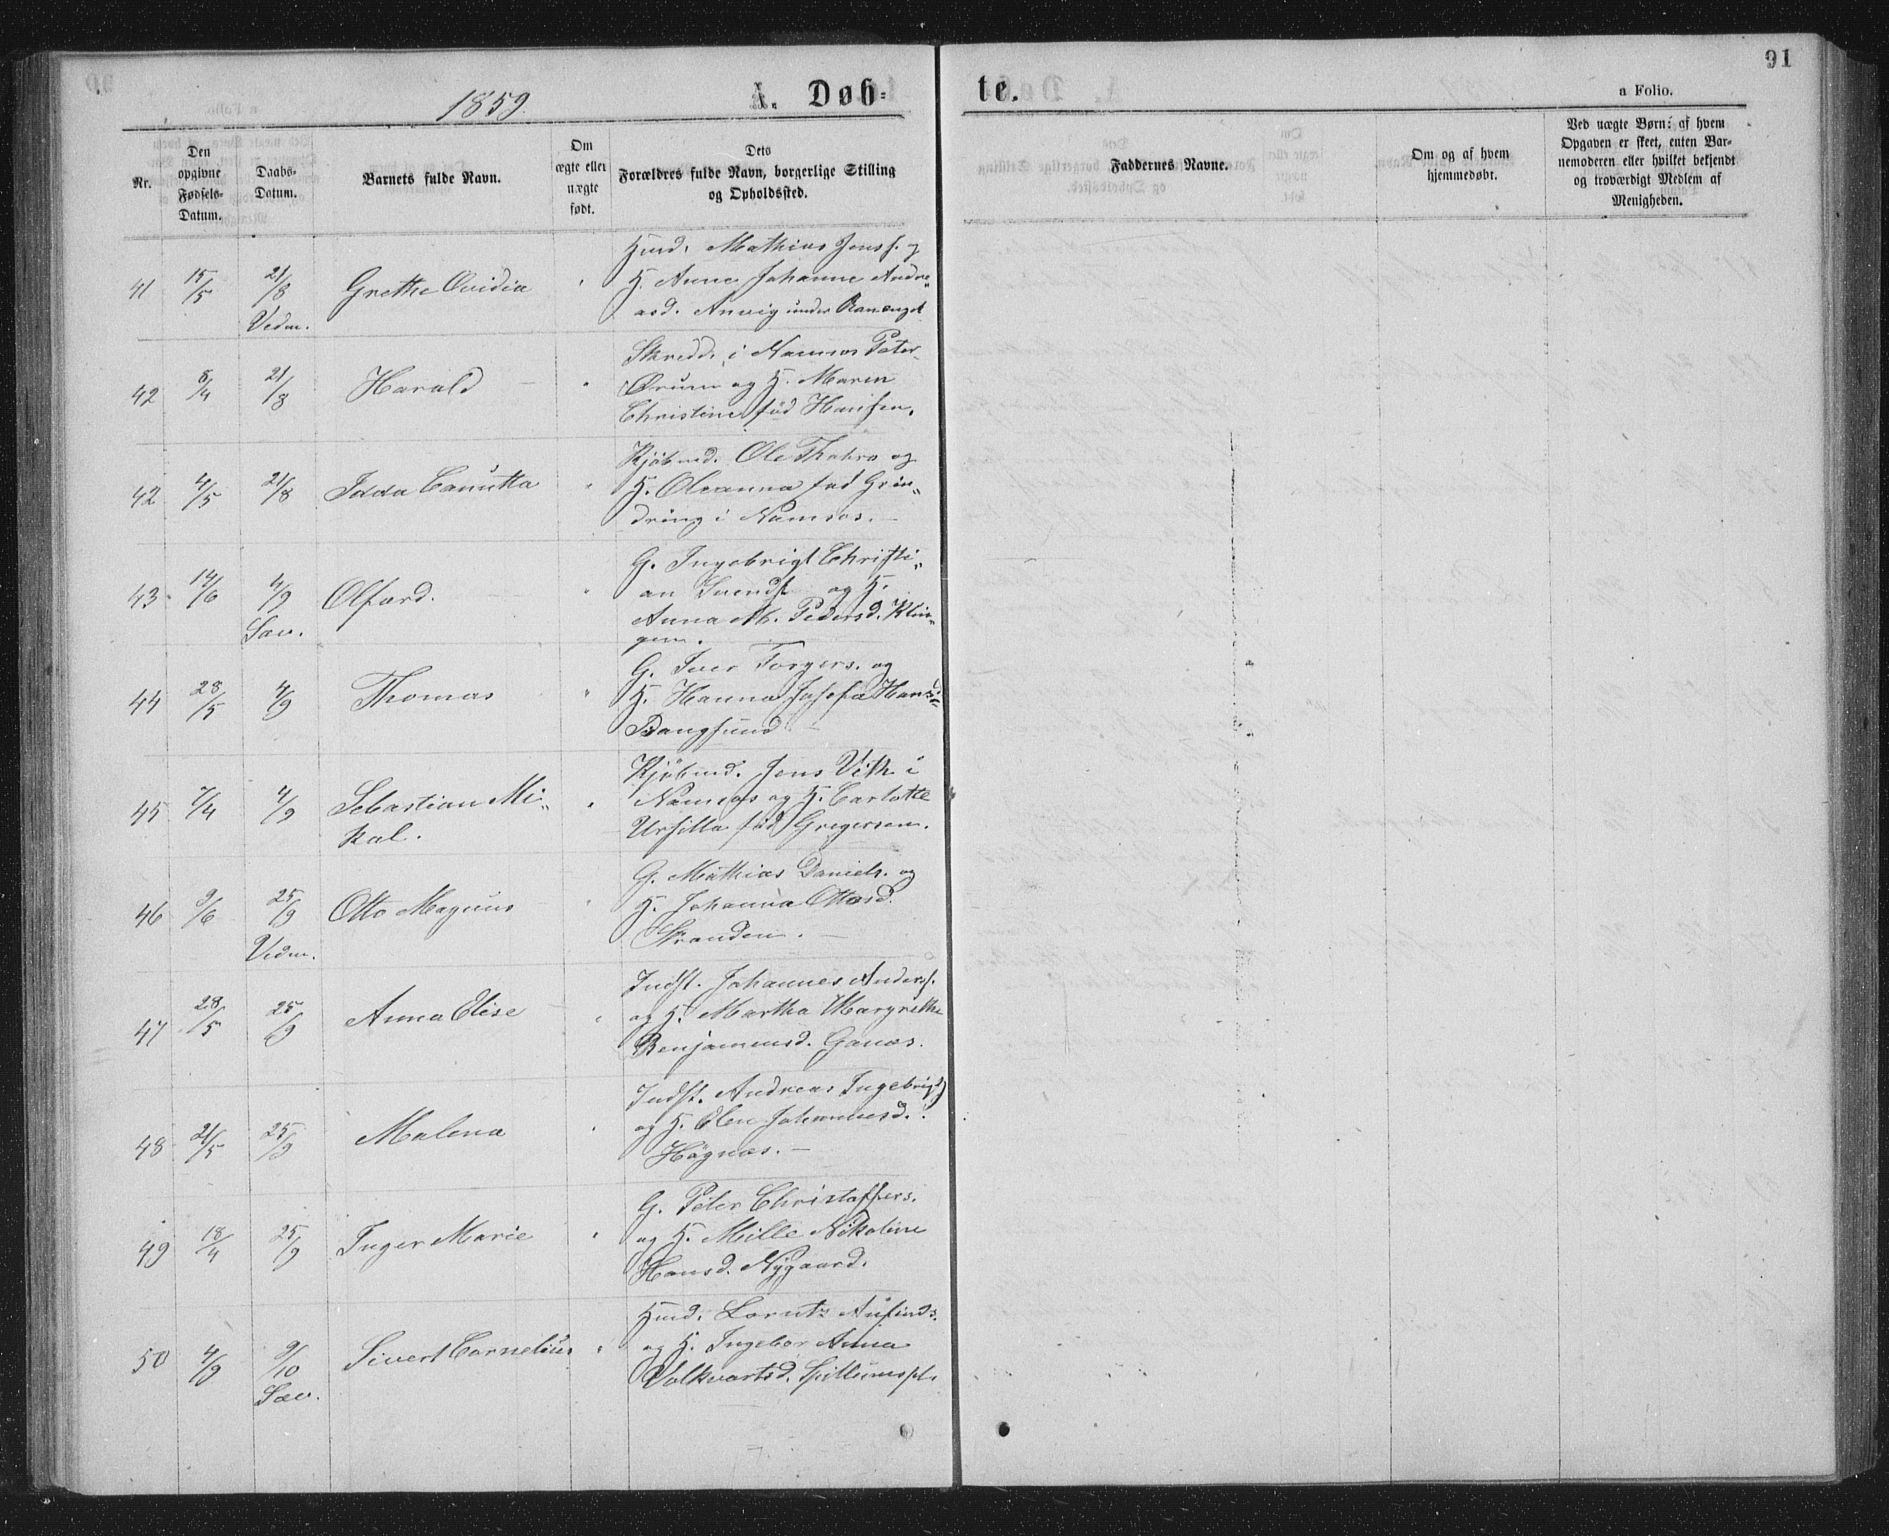 91
1859.
A. Døb-
te.
a Folio.
Nr.
Den
opgivne
Fødsels-
Datum.
Daabs-
Datum.
Barnets fulde Navn.
Om
ægte eller
uægte
født.
Dets
Forældres fulde Navn, borgerlige Stilling
og Opholdssted.
Faddernes Navne.
Om og af hvem
hjemmedøbt.
Ved uægte Børn: af hvem
Opgaven er skeet, enten Bar-
nemoderen eller hvilket bekjendt
og troværdigt Medlem af
Menigheden.
Huusd. Mathias Jenss. og
41 15/5 21/8 Grethe Ovidia " H. Anne Johanne Andre„
Vedm. asd. Anvig under
Skredd. i Namsos Peter
42 8/4 21/8 Harald " Ørum og H. Maren
Christine fød Hansen.
Kjöbmd. Ole Thobro og
42 4/5 21/8 Idda Canutta " H. Oleanna fød Grön„
dring i Namsos.
G. Ingebrigt Christi„
43 14/6 4/9 Olfard. " an Svends. og H.
Sæv. Anna M. Pedersd. Klin„
gen.
G. Iver Torgers. og
44 28/5 4/9 Thomas " H. Hanna Josefa Hansd.
Bangsund
Kjöbmd. Jens Vik i
45 7/4 4/9 Sebastian Mi„ " Namsos og H. Carlotte
kal. Ursilla fød Gregersen.
G. Mathias Daniels. og
46 9/6 25/9 Otto Magnus " H. Johanna Ottesd.
Vedm. Stranden.
Indst. Johannes Anders.
47 28/5 25/9 Anna Elise " og H. Martha Margrethe
Benjaminsd. Ganæs.
Indst. Andreas Ingebrigts
48 21/5 25/9 Malena " og H. Elen Johannesd.
Högnæs.
G. Peter Christoffers.
49 18/4 25/9 Inger Marie " og H. Mille Nikoline
Hansd. Nygaard.
Huusd. Lorents Anfinds.
50 4/9 9/10 Sivert Cornelius " og H. Ingebor Anna
Sæv. Volkvartsd. Spillumspl.